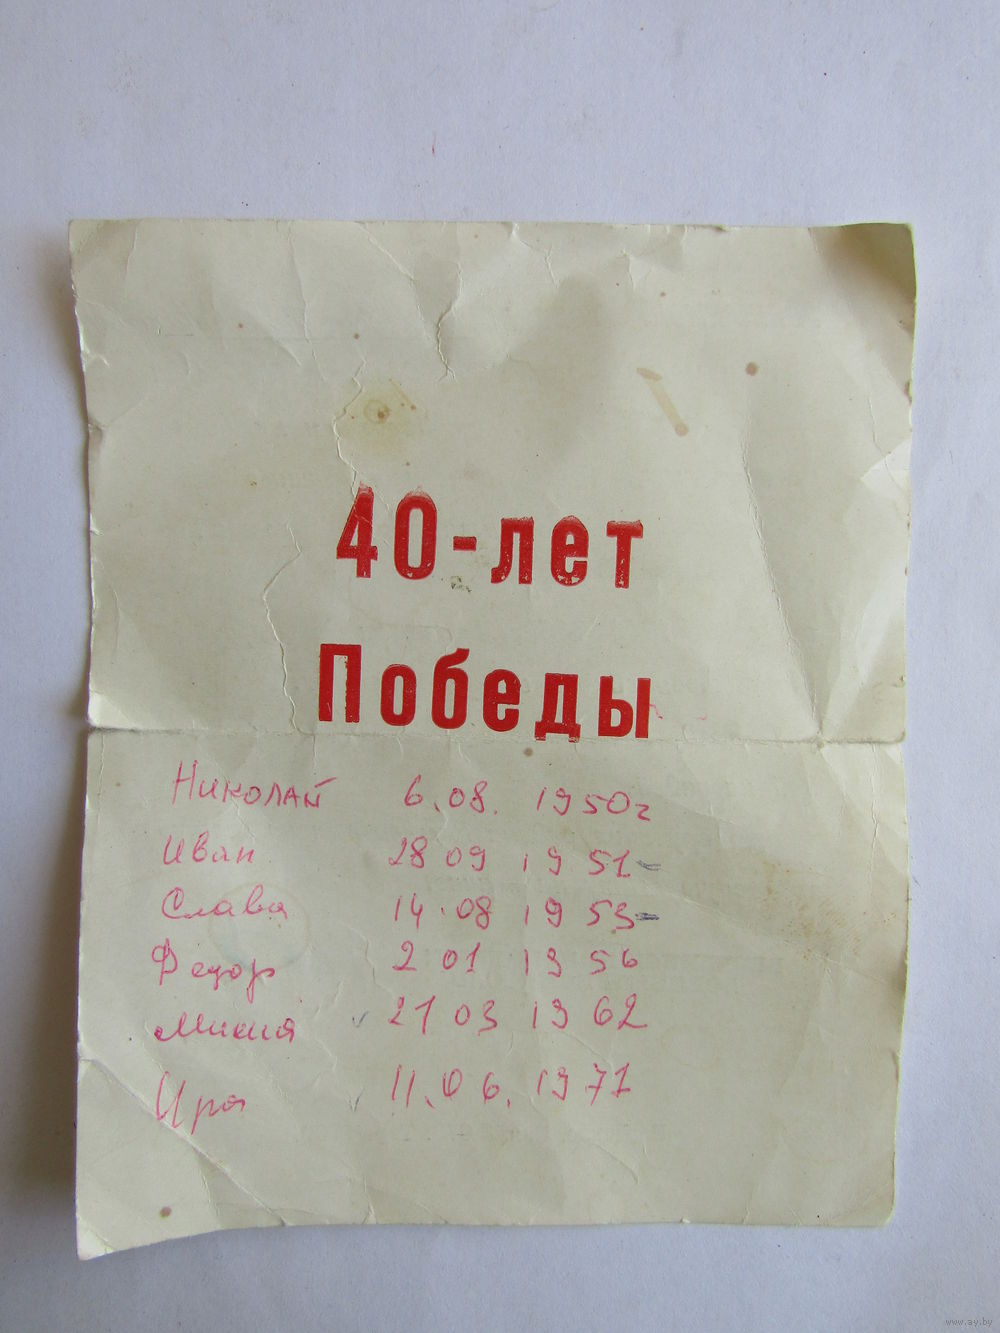 40-лет
Победы
Николай 6.08. 1950г
Иван 28 09 1951
Слава 14.08 1953
Федор 2 01 1956
21 03 1962
Ира 11.06.1971
www.ay.by